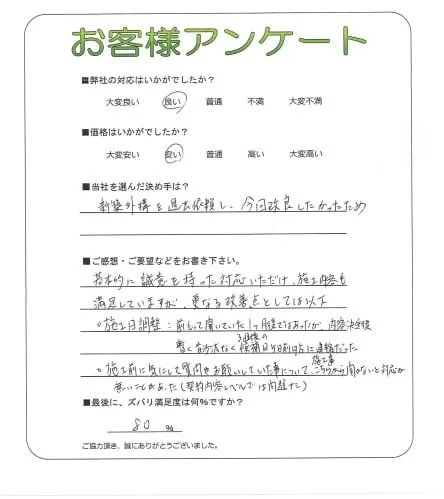 お客様アンケート
■弊社の対応はいかがでしたか?
大変良い 良い 普通 不満 大変不満
■価格はいかがでしたか?
大変安い 安い 普通 高い 大変高い
■当社を選んだ決め手は?
新築外構を過去依頼し、今回改良したかったため
■ご感想・ご要望などをお書き下さい。
基本的に誠意を持った対応いただけ、施工内容も
満足していますが、更なる改善点としては以下
○施工日調整:前もって聞いていた1ヶ月後ではあったが、内容決定後
暫く音沙汰なく候補日
に連絡だった
○施工前に気にして質問やお願いしていた事について、施工事こちらから聞かないと対応が
無いことがあった(契約内容レベルでは問題ナシ)
■最後に、ズバリ満足度は何%ですか?
80 %
ご協力頂き、誠にありがとうございました。